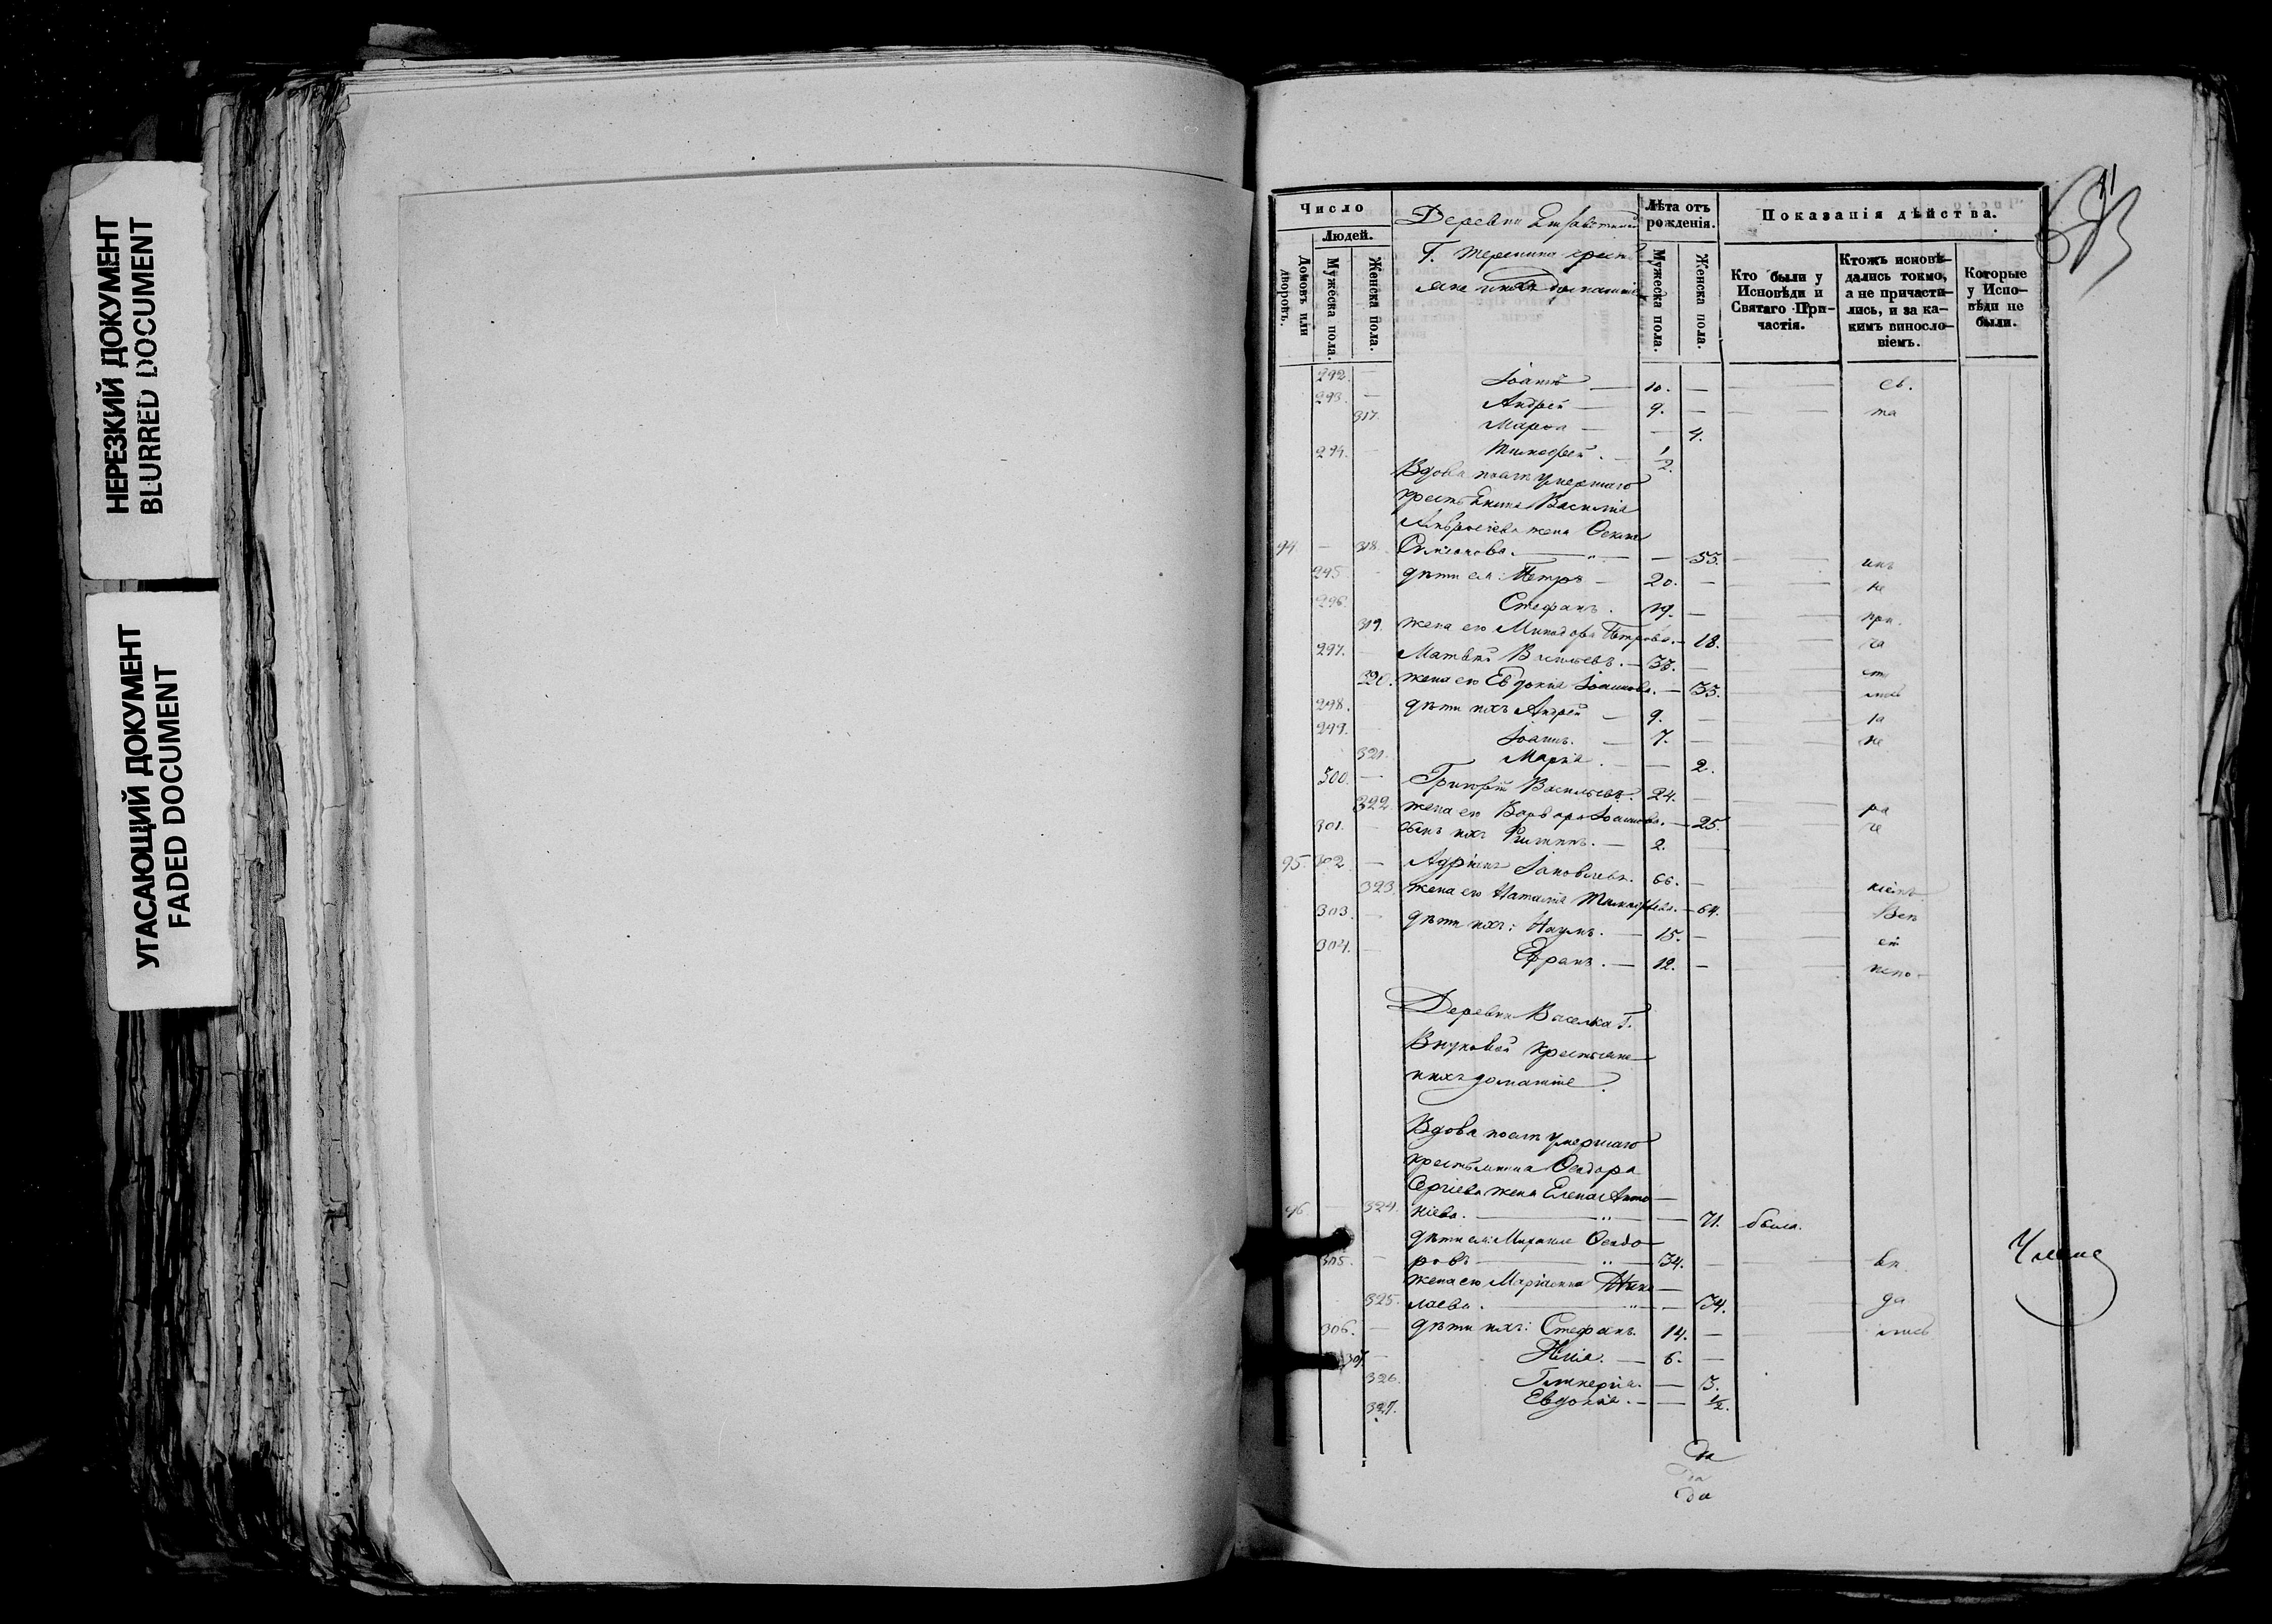 НЕРЕЗКИЙ ДОКУМЕНТ
BLURRED DOCUMENT
УГАСАЮЩИЙ ДОКУМЕНТ
FADED DOCUMENT
Число
Людей.
Домовъ или дворовъ.
Мужеска пола.
Женска пола.
Деревни
Г. крестья
яне и ихъ домашніе
Лѣта отъ рожденія.
Мужеска пола.
Женска пола.
Показанія дѣйства.
Кто были у Исповѣди и Святаго Причастія.
Ктожъ исповѣдались токмо, а не причастились, и за какимъ винословіемъ.
Которые у Исповѣди не были.
292. — Іоаннъ — 10. — — св.
293. — Андрей — 9. — — та
317. Марѳа — — 4.
294. — Тимофей. — 1/2.
Вдова послѣ умершаго
крестьянина Василія
жена
94. — 318. — 55. — инъ
295 — дѣти ея: Петръ — 20. — — не
296. Стефанъ. 19. — — при.
319. жена его Минодора Петрова. — 18. — ча
297. — Матвѣй Васильевъ. — 33. — — ст
320. жена его Евдокія Іоаннова. — 35. — лись
298. — дѣти ихъ Андрей — 9. — — за
299. Іоаннъ. — 7. — — не
321. Марія. — — 2.
300. — Григорій Васильевъ. 24. — — ра
322. жена его Варвара Іоаннова. — 25. — че
301. — сынъ ихъ Филиппъ. — 2. —
95. 302 — Адріанъ Іаковлевъ. 66. — — ніемъ
323. жена его Наталія Тимофѣева. — 64. — Всѣ
303. — дѣти ихъ: Наумъ. — 15. — — ст
304. — — 12. — — испо-
Деревни Выселка Г.
Внуковой крестьяне
и ихъ домашніе.
Вдова послѣ умершаго
крестьянина Ѳеодора
Сергіева жена Елена Анто—
96 — 324. ніева. — „ — — 71. была.
дѣти ея: Михаилъ Ѳеодо—
305. — ровъ — „ — 34. — — вѣ.
жена его Маріанна Нико—
325. лаева. — „ — — 34. — да
306. — дѣти ихъ: Стефанъ. 14. — — лись
307. — Илія. — 6. —
326. Гликерія. — — 3.
327. Евдокія. — — 1/2.